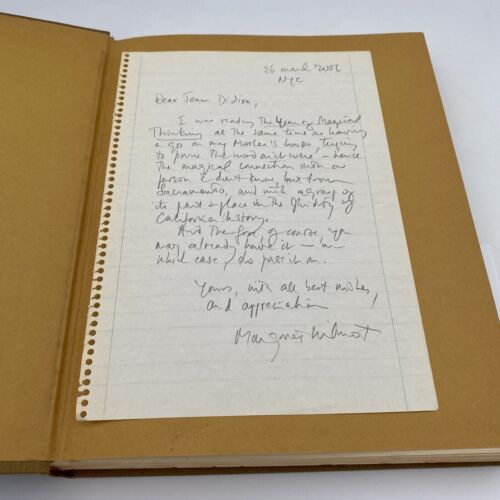 26 march 2006
NYC
Dear Joan Didion,
I was reading The Year of Magical
Thinking at the same time as having
a go on my Mother's books, trying
to prune the word – hence
the magical connection with a
person I don't know, but from
Sacramento, and with a grasp of
its past & place in the fluidity of
Californian history.
And therefore, of course you
may already have it – in
which case, do pass it on.
Yours, with all best wishes,
and appreciation
Margaret